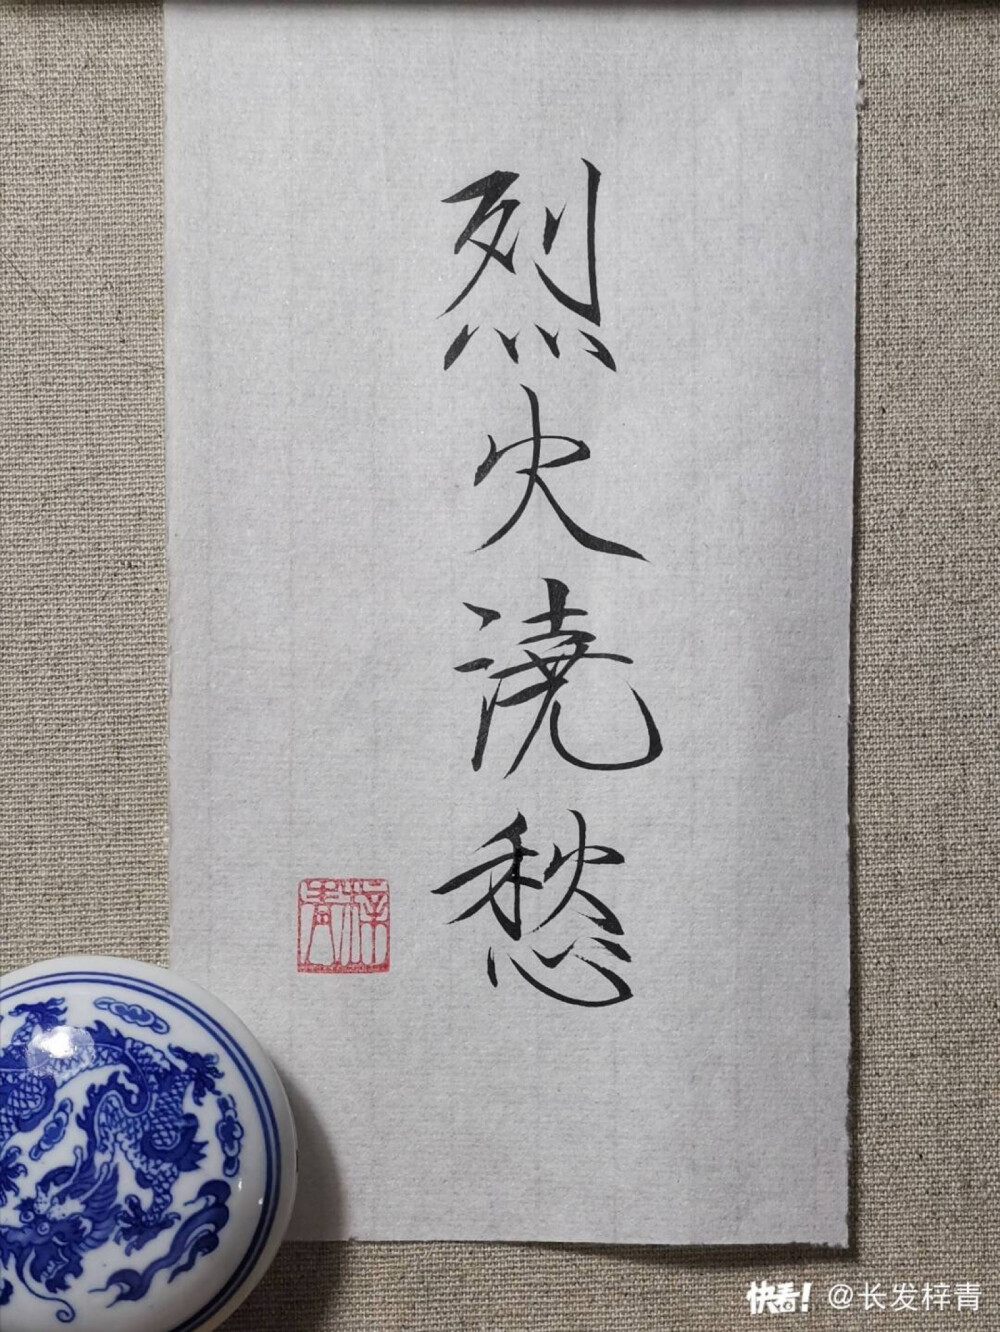 烈火浇愁
梓青
快看! @长发梓青